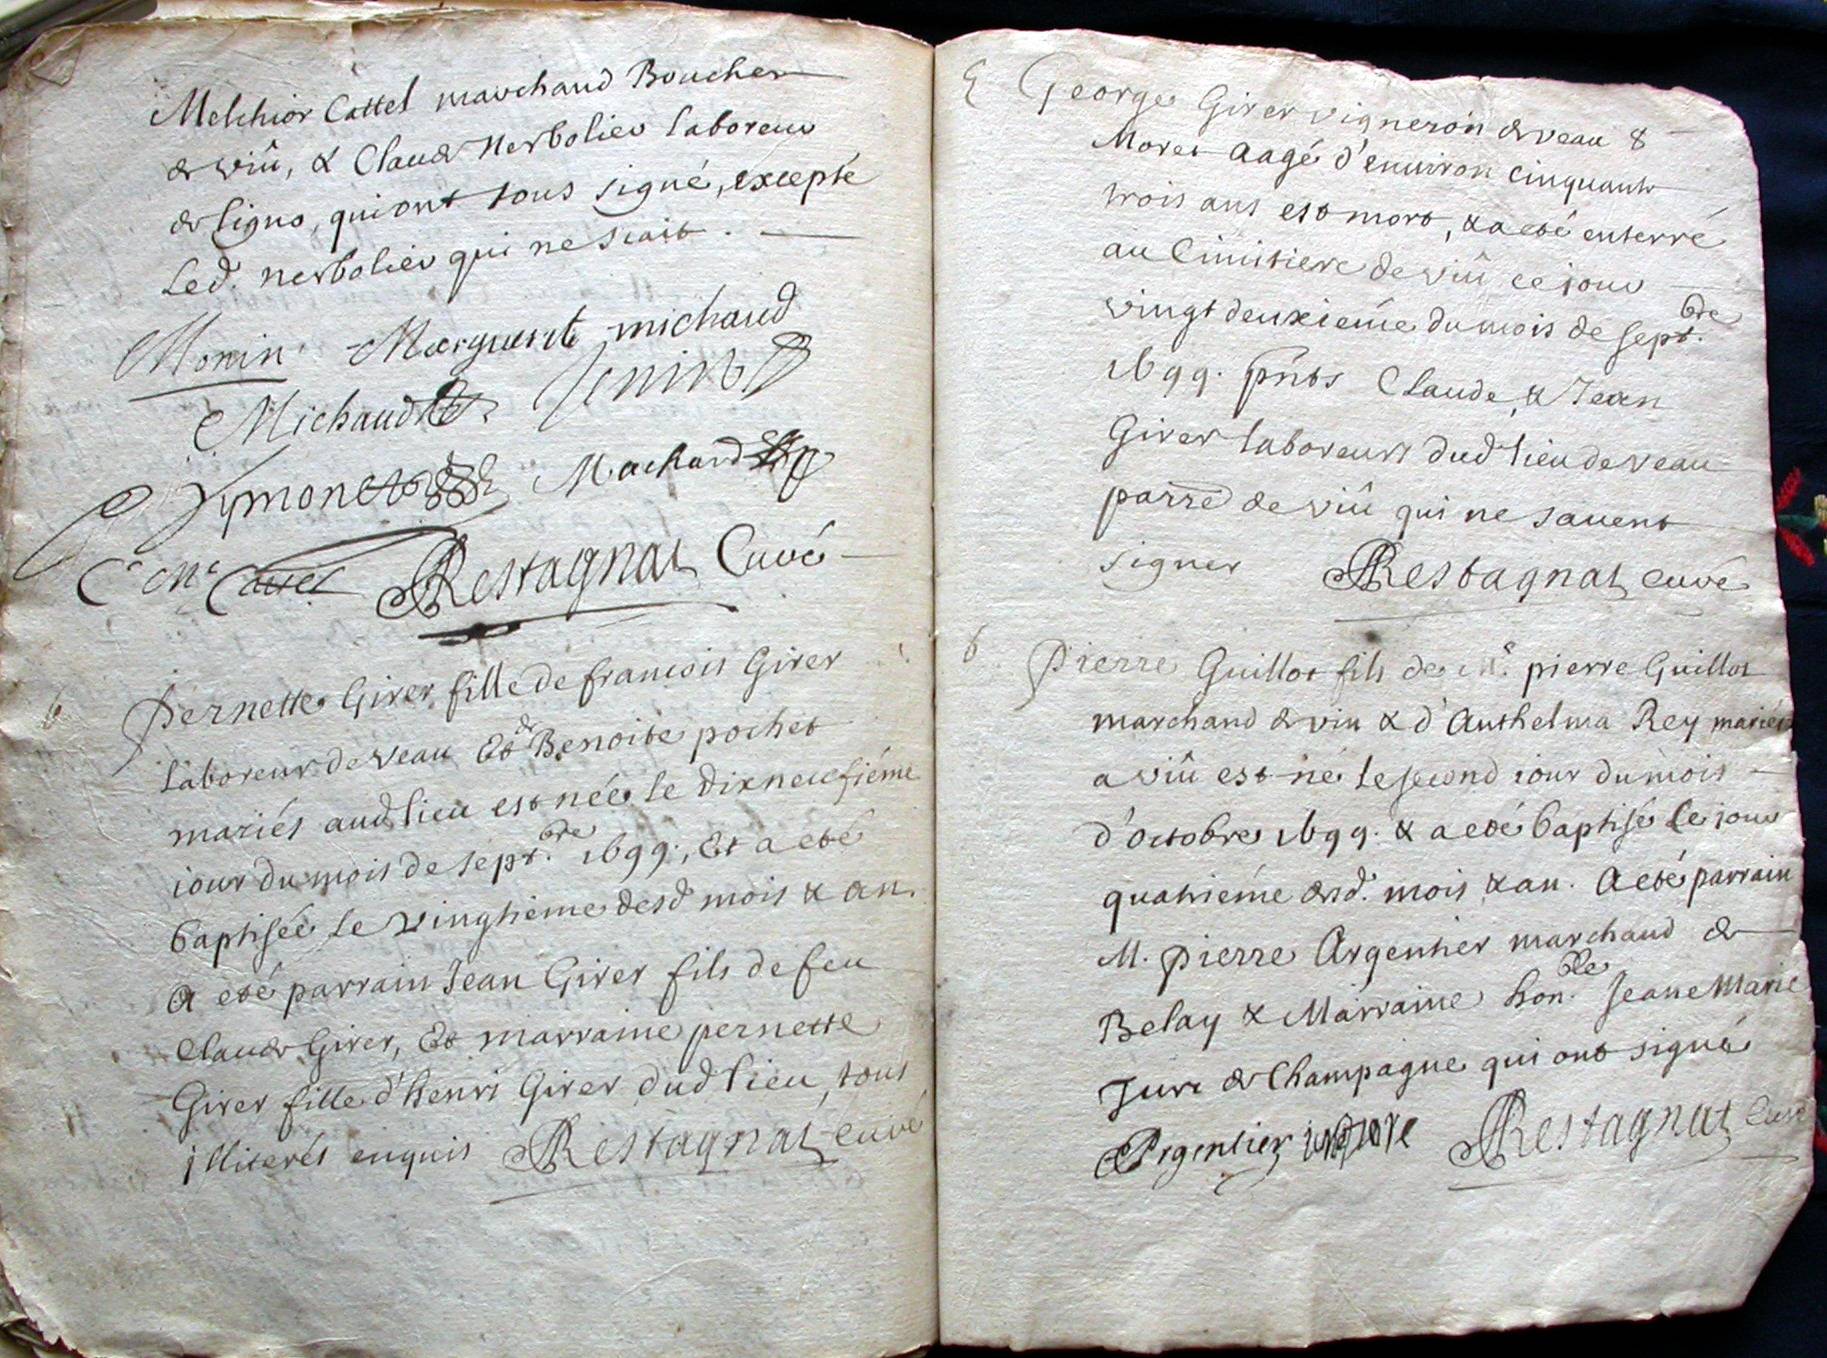 Melchior Cattel marchand Boucher
de viû, & Claude Nerbolier laboreur
de Ligno, qui ont tous signé, excepté
Led. nerbolier qui ne sçait.
Monin Marguerite michaud
Michaud
Symonet Machard
Cattel Restagnat Curé
b Pernette Girer fille de francois Girer
laboreur de veau Et de Benoite pochet
mariés aud. lieu est née le dixneufiéme
iour du mois de sept.bre 1699., Et a eté
baptisée le vingtieme desd. mois & an.
A eté parrain Jean Girer fils de feu
Claude Girer, Et marraine pernette
Girer fille d'henri Girer dud lieu, tous
illiterés enquis Restagnat curé
E George Girer vigneron de veau &
Moret aagé d'enuiron cinquante
trois ans est mort, & a eté enterré
au Cimitiere de viû ce jour
vingt deuxiéme du mois de sept.bre
1699. pñts Claude, & Jean
Girer laboreurs dud lieu de veau
parre de viû qui ne sauent
signer Restagnat curé
b Pierre Guillot fils de Mr. pierre Guillot
marchand de viû & d'Anthelma Rey mariés
a viû est né le second iour du mois
d'octobre 1699. & a eté baptisé Le jour
quatriéme desd. mois & an. A eté parrain
M. pierre Argentier marchand de
Belay & Marraine hon.ble Jeane Marie
Jure de Champagne qui ont signé
Argentier Restagnat curé